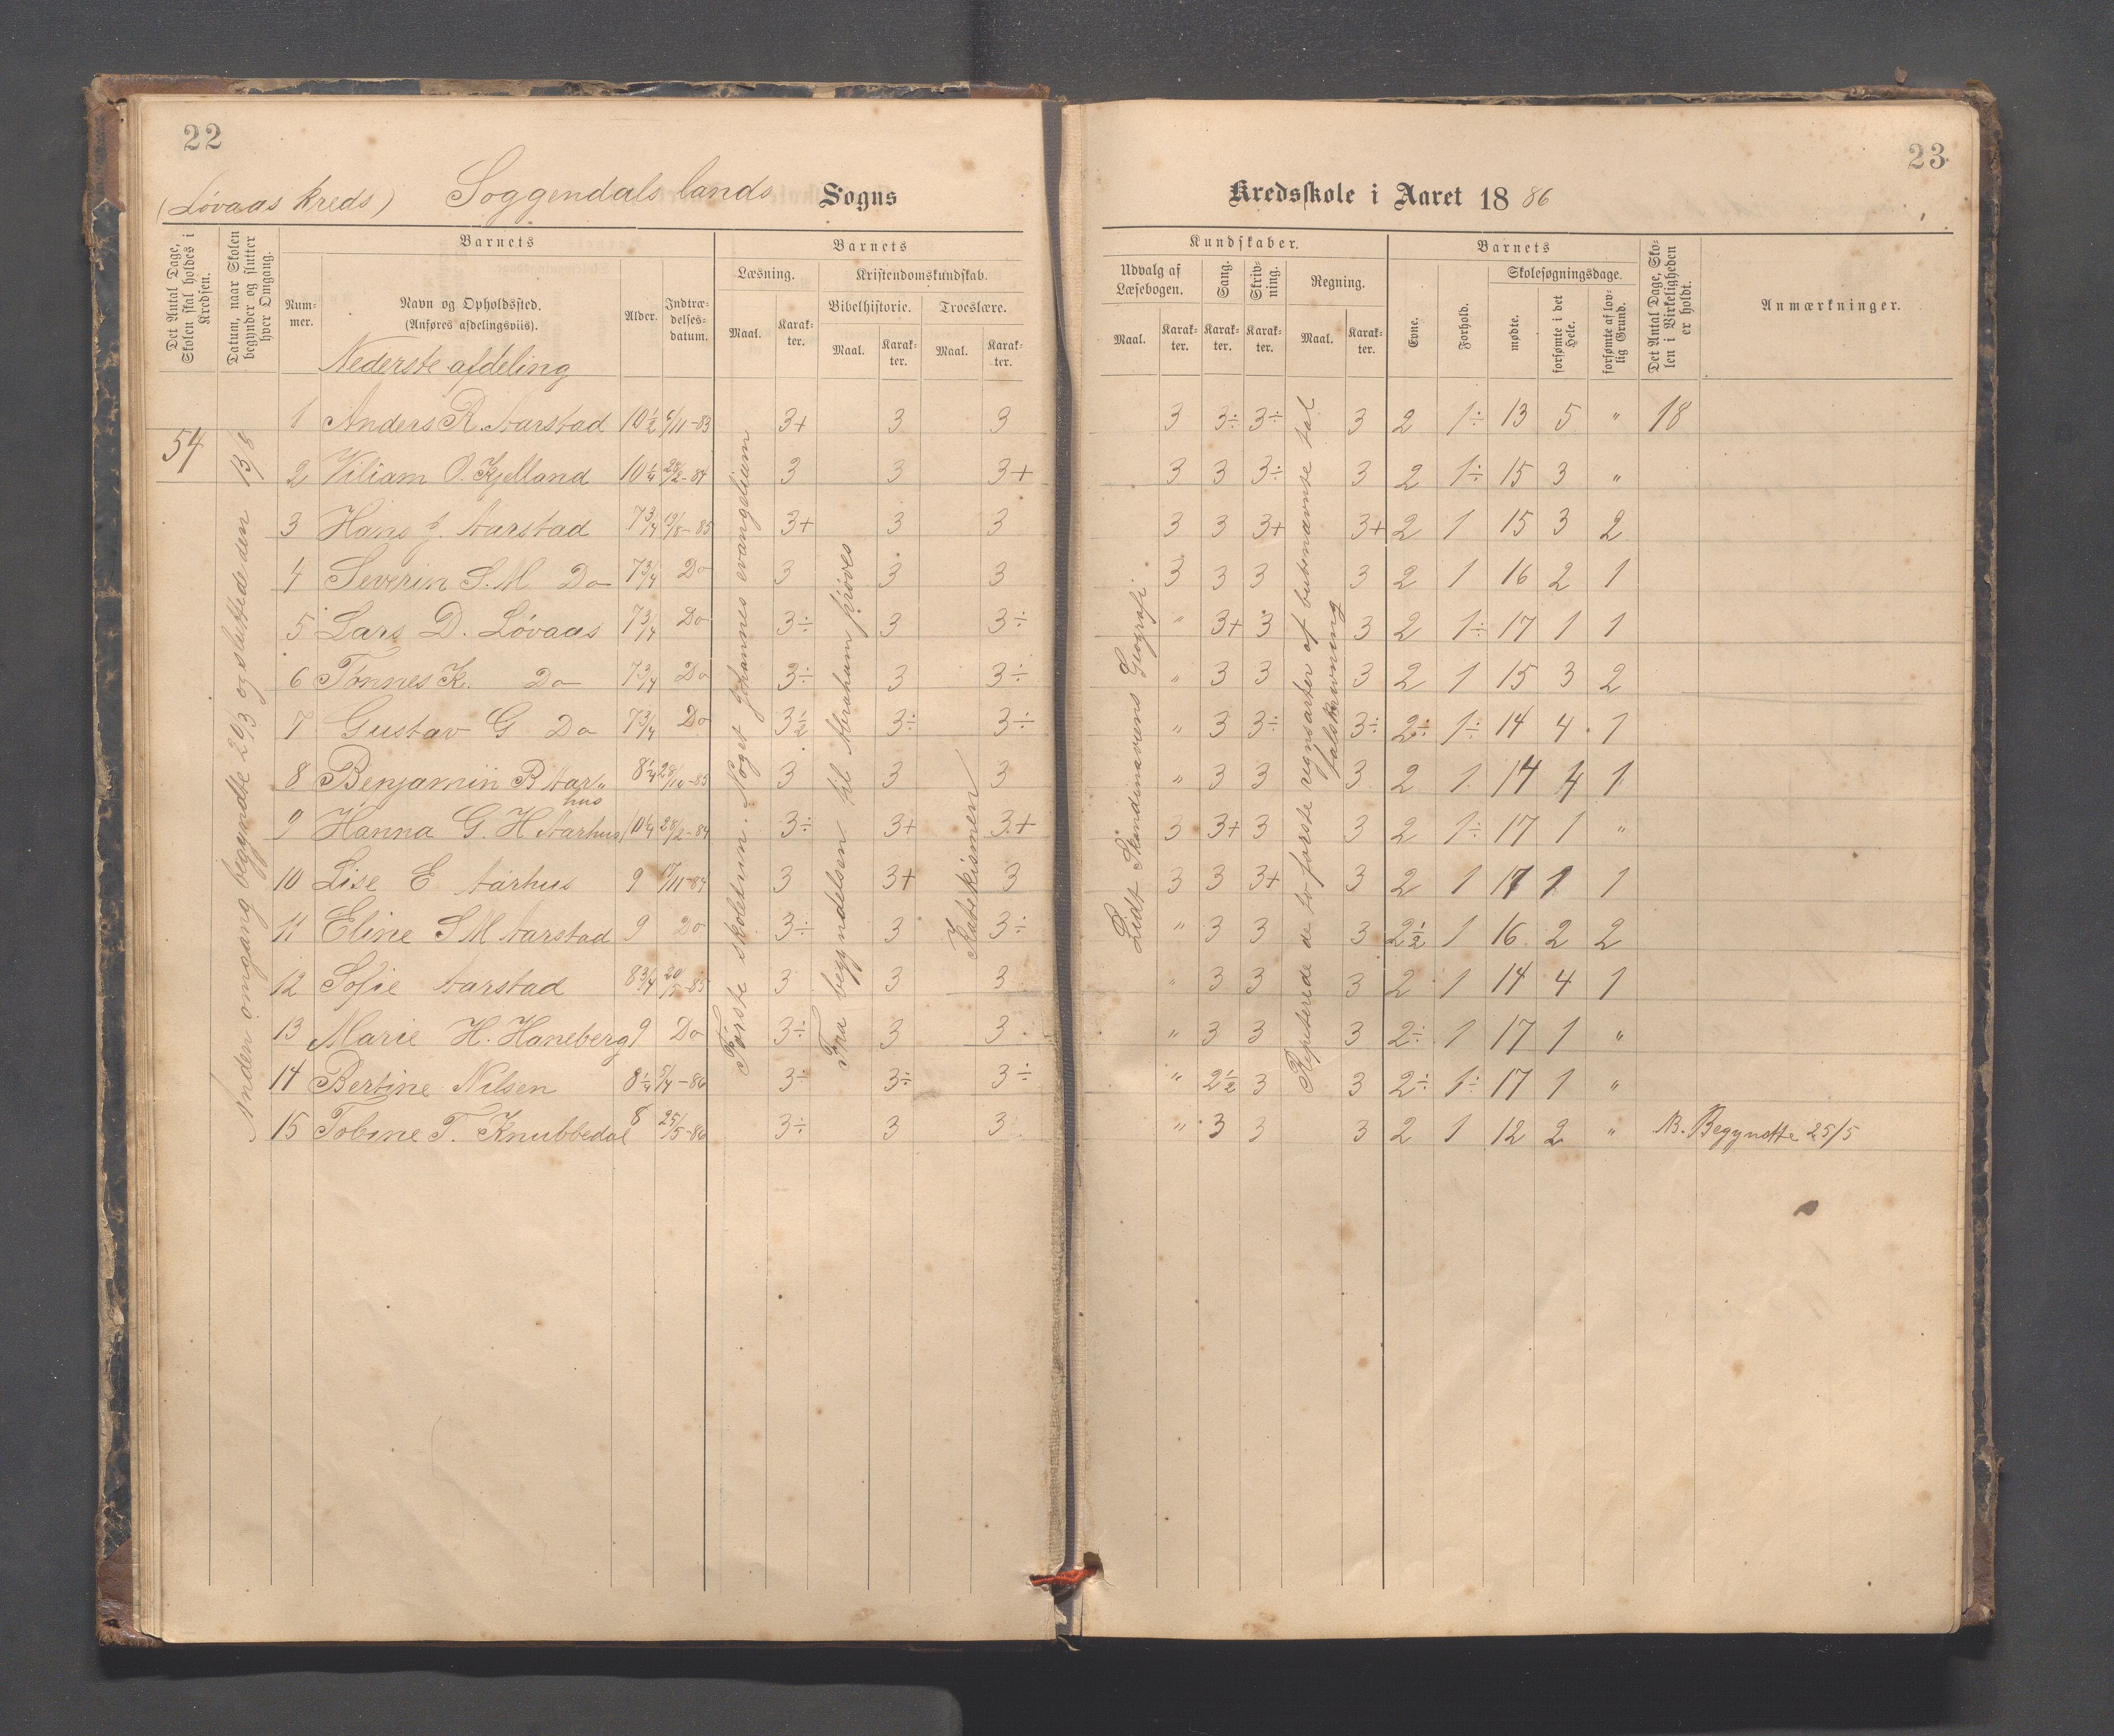 22
(Løvaas kreds) Soggendals lands Sogns
Det Antal Dage, Skolen skal holdes i Kredsen.
Datum, naar Skolen begynder og slutter hver Omgang.
Barnets
Num-mer.
Navn og Opholdssted.
(Anføres afdelingsviis).
Alder.
Indtræ-delses-datum.
Barnets
Læsning.
Kristendomskundskab.
Bibelhistorie.
Troeslære.
Maal. Karak-ter. Maal. Karak-ter. Maal. Karak-ter.
Nederste afdeling
54
Anden omgang begyndte 20/3 og sluttede den 13/8
1 Anders R. Aarstad 10½ 6/11-83 3+ 3 3
2 Viliam O. Kjelland 10¼ 28/2-84 3 3 3+
3 Hans J. Aarstad 7¾ 19/8-85 3+ 3 3
4 Severin S. M Do 7¾ Do 3 3 3
5 Lars D. Løvaas 7¾ Do 3÷ 3 3÷
6 Tønnes K. Do 7¾ Do 3÷ 3 3÷
7 Gustav G Do 7¾ Do 3½ 3÷ 3÷
8 Benjamin B Aar"hus 8¼ 28/10-85 3 3 3
9 Hanna G. H Aarhus 10¼ 28/2-84 3÷ 3+ 3+
10 Lise E Aarhus 9 17/11-84 3 3+ 3
11 Eline S M Aarstad 9 Do 3÷ 3 3÷
12 Sofie Aarstad 8¾ 20/5-85 3 3 3
13 Marie H. Haneberg 9 Do 3÷ 3 3
14 Bertine Nilsen 8¼ 5/4-86 3÷ 3÷ 3÷
15 Tobine T. Knubbedal 8 25/5-86 3÷ 3 3
Første skoletrin. Noget Johannes evangelium
Fra begyndelsen til Abraham prøves
Katekismen
23
Kredsskole i Aaret 1886
Kundskaber.
Udvalg af Læsebogen.
Sang.
Skriv-ning.
Regning.
Barnets
Evne.
Forhold.
Skolesøgningsdage.
mødte.
forsømte i det Hele.
forsømte af lov-lig Grund.
Det Antal Dage, Sko-len i Virkeligheden er holdt.
Anmærkninger.
Maal. Karak-ter. Karak-ter. Karak-ter. Maal. Karak-ter.
3 3÷ 3÷ 3 2 1÷ 13 5 " 18
3 3 3÷ 3 2 1÷ 15 3 "
3 3 3+ 3+ 2 1 15 3 2
3 3 3 3 2 1 16 2 1
" 3+ 3 3 2 1÷ 17 1 1
" 3 3 3 2 1 15 3 2
" 3 3÷ 3÷ 2÷ 1÷ 14 4 1
" 3 3 3 2 1 14 4 1
3 3+ 3 3 2 1÷ 17 1 "
3 3 3+ 3 2 1 17 1 1
" 3 3 3 2½ 1 16 2 2
" 3 3 3 2 1 14 4 1
" 3 3 3 2÷ 1 17 1 "
" 2½ 3 3 2÷ 1÷ 17 1 "
" 3 3 3 2 1 12 2 " NB. Begyndte 25/5
Lidt Skandinaviens Geografi
Repeterede de to første regnsarter af benævnte tal
talskrivning